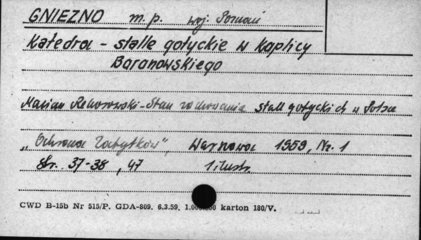 GNIEZNO m.p. woj. Poznań
Katedra - stalle gotyckie w kaplicy
Baranowskiego
Marian Rehorowski - Stan zachowania stall gotyckich w Polsce
„Ochrona Zabytków", Warszawa 1959, Nr. 1
str. 37-38, 47 1 ilustr.
CWD B-15b Nr 515/P. GDA-809. 6.3.59. karton 180/V.